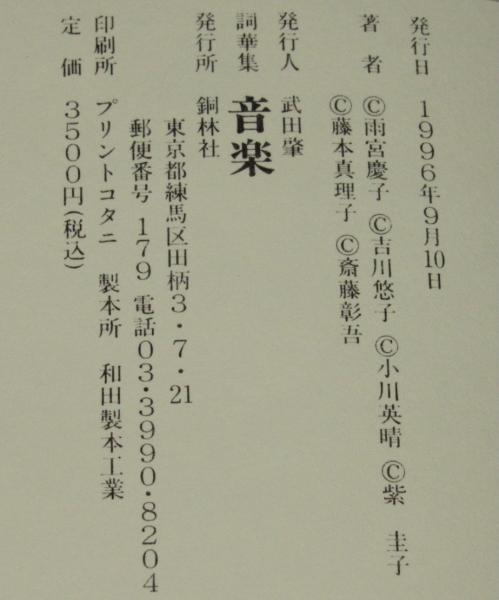 発行日　1996年9月10日
著　者　©雨宮慶子 ©吉川悠子 ©小川英晴 ©紫　圭子
©藤本真理子 ©斎藤彰吾
発行人　武田肇
詞華集　音楽
発行所　銅林社
東京都練馬区田柄3・7・21
郵便番号 179 電話03・3990・8204
印刷所　プリントコタニ　製本所　和田製本工業
定　価　3500円(税込)